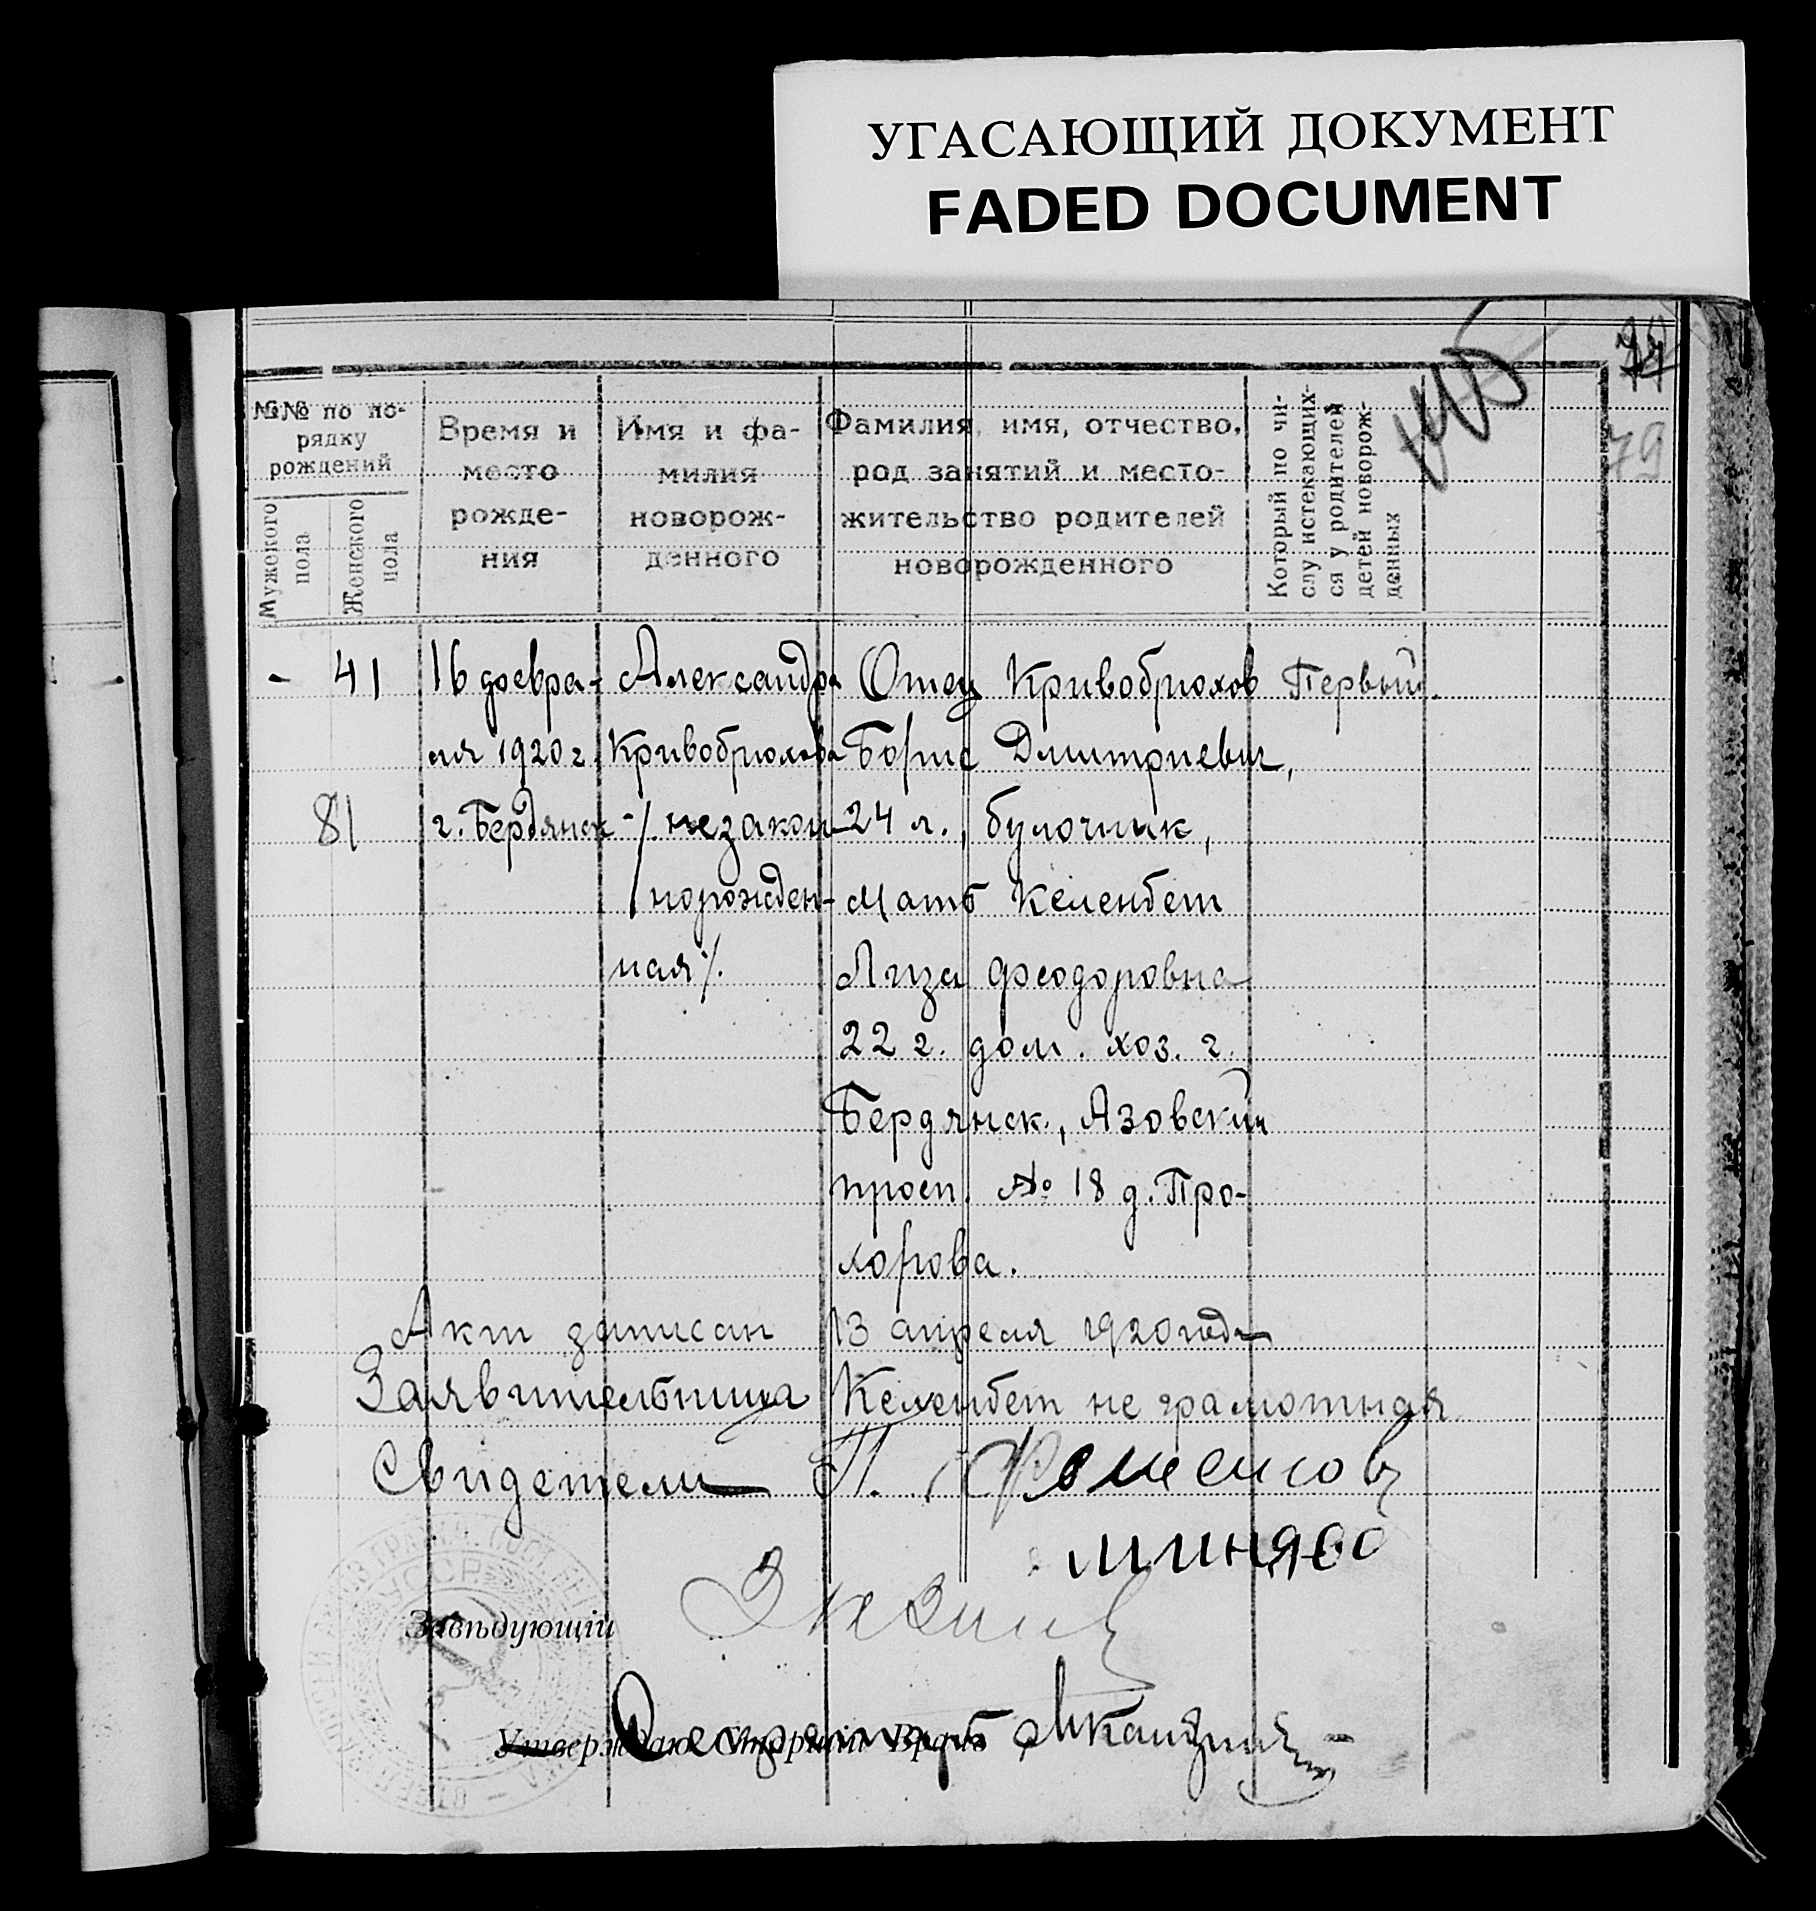 УГАСАЮЩИЙ ДОКУМЕНТ
FADED DOCUMENT
79
№№ по по-
рядку
рождений
Мужского
пола
Женского
пола
Время и
место
рожде-
ния
Имя и фа-
милия
новорож-
денного
Фамилия, имя, отчество,
род занятий и место-
жительство родителей
новорожденного
Который по чи-
слу истекающих-
ся у родителей
детей новорож-
денных
- 41
81
16 февра-
ля 1920 г.
г. Бердянск
Александра
Кривобрюхова
-/ незакон-
норожден-
ная/.
Отец Кривобрюхов
Борис Дмитриевич,
24 л., булочник,
Мать Келенбет
Лиза Феодоровна
22 г. дом. хоз. г.
Бердянск., Азовский
просп. № 18 д. Про-
хорова.
Первый.
Акт записан 13 апреля 1920 года
Заявительница Келенбет не грамотная
Свидетели П.
УССР
Завѣдующій
Утверждаю: Старшій Врачъ